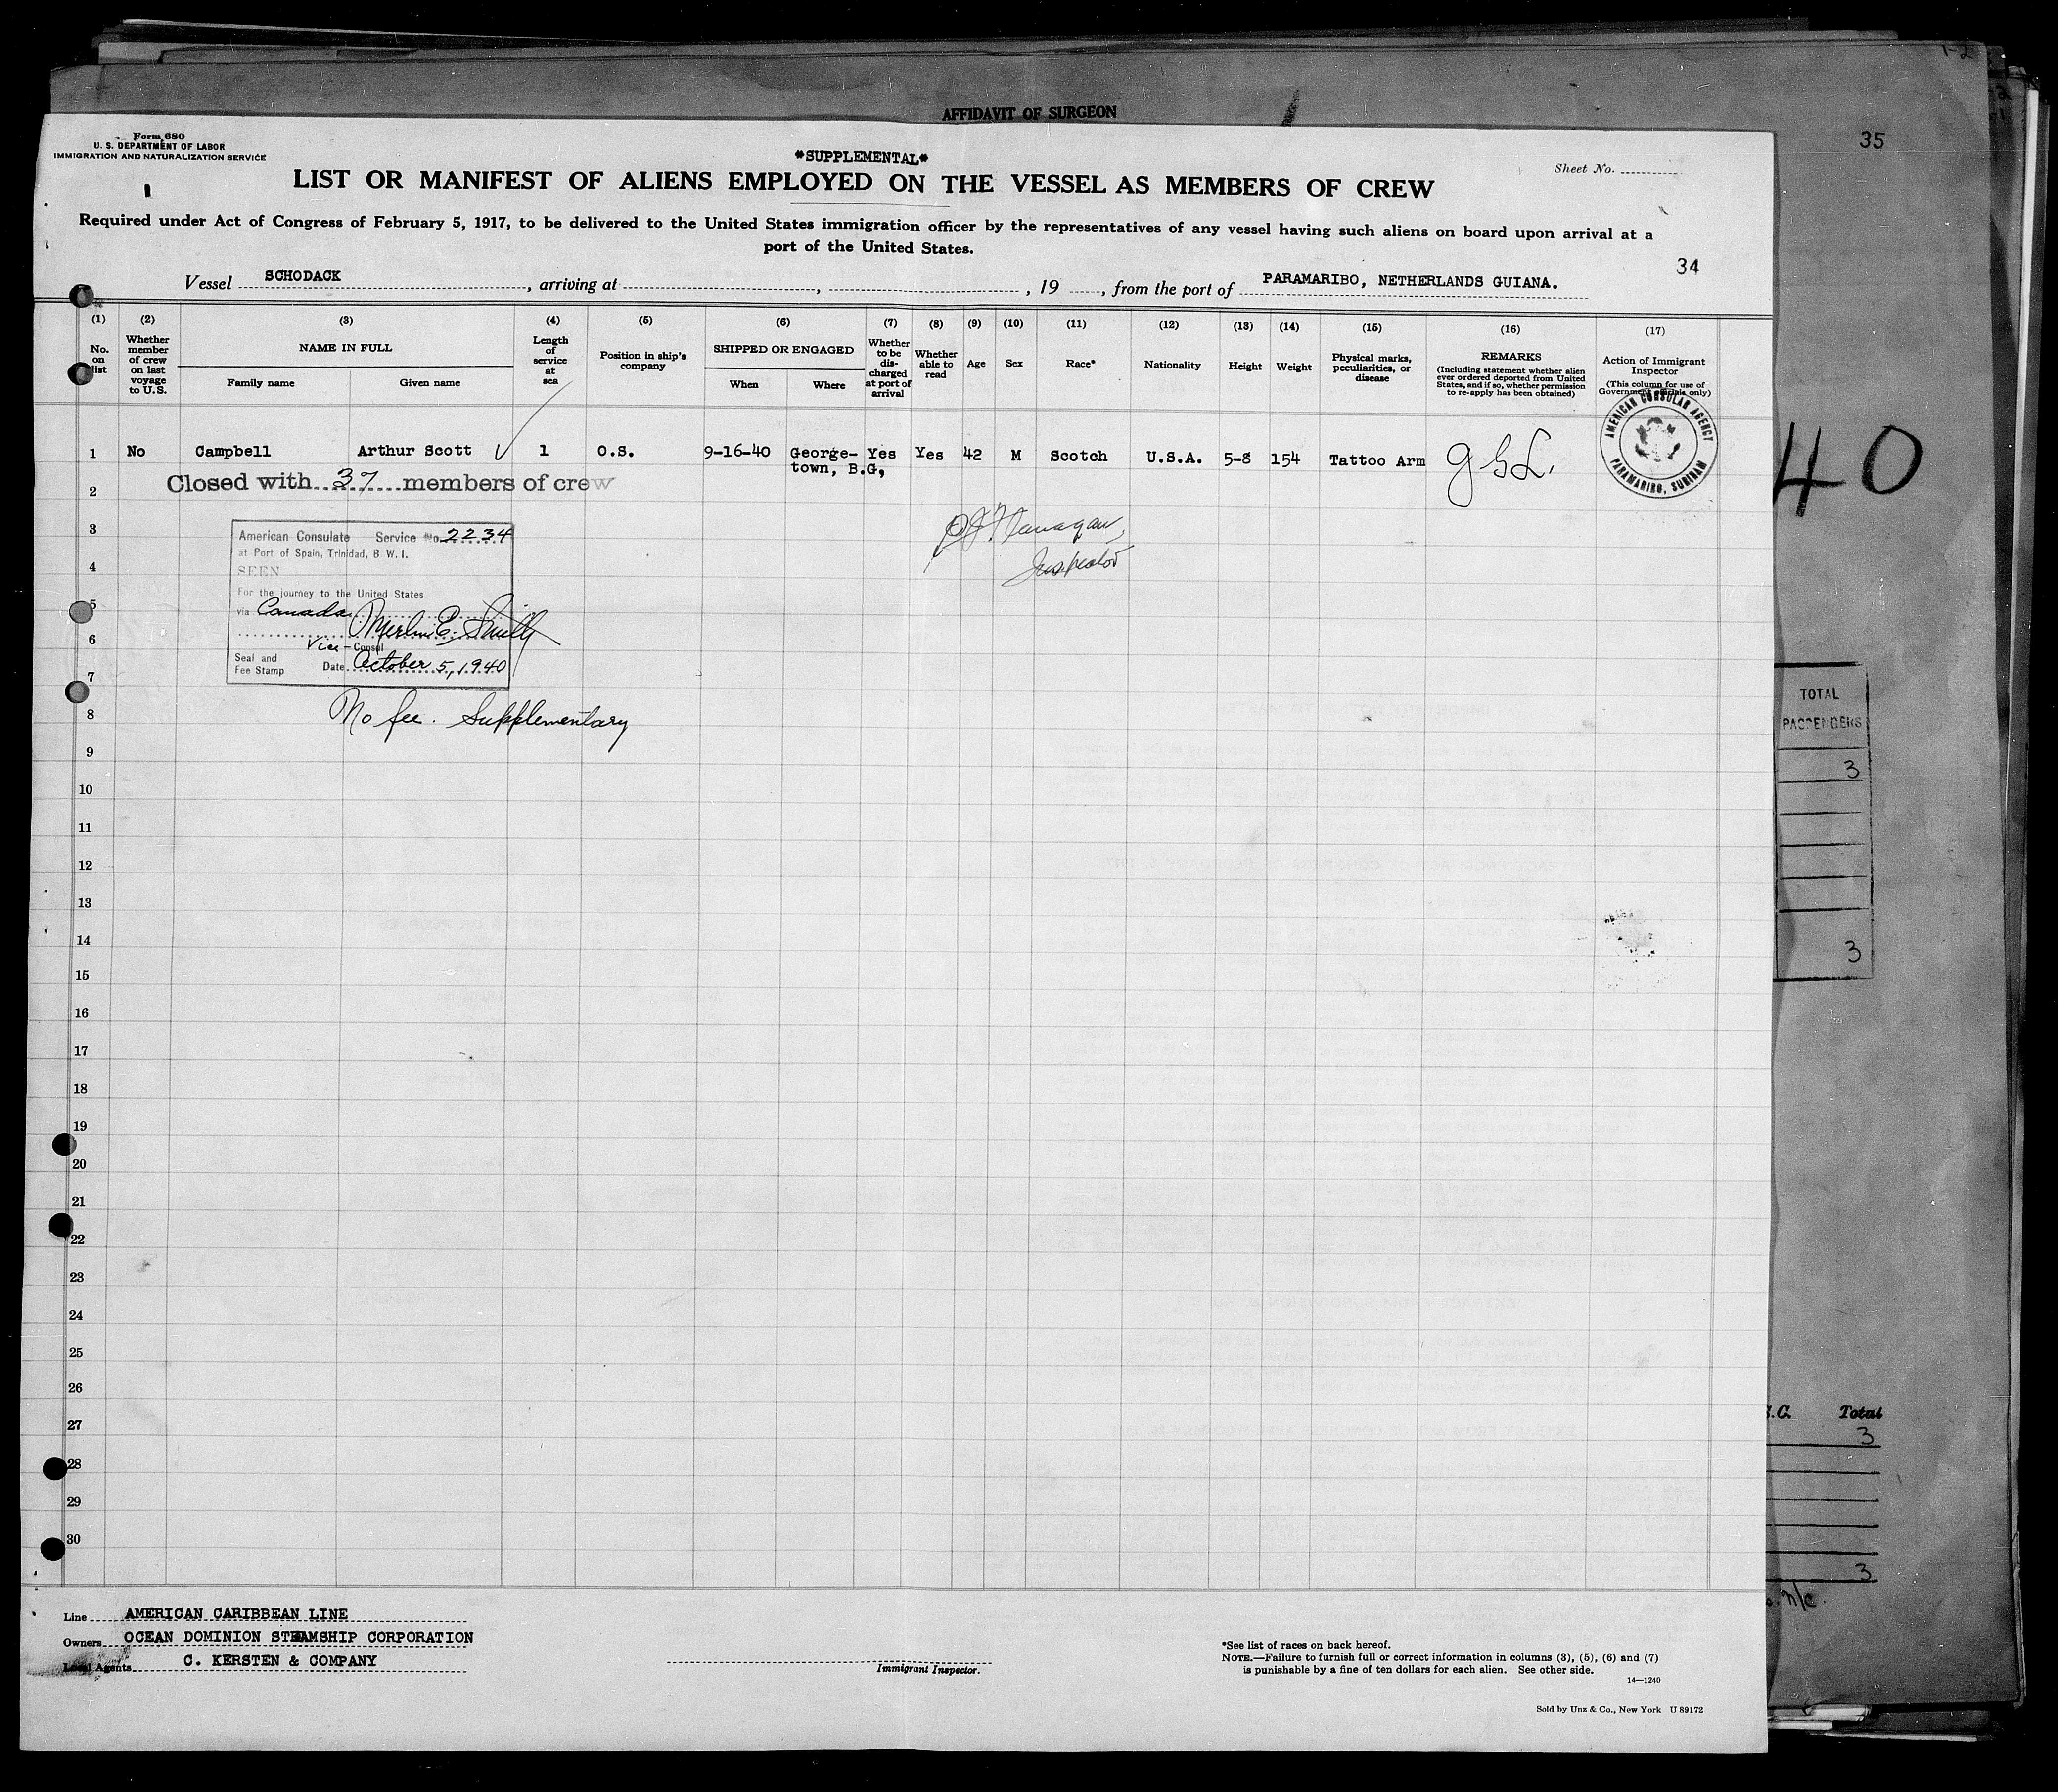 AFFIDAVIT OF SURGEON
35
Form 680
U. S. DEPARTMENT OF LABOR
IMMIGRATION AND NATURALIZATION SERVICE
*SUPPLEMENTAL*
Sheet No.
LIST OR MANIFEST OF ALIENS EMPLOYED ON THE VESSEL AS MEMBERS OF CREW
Required under Act of Congress of February 5, 1917, to be delivered to the United States immigration officer by the representatives of any vessel having such aliens on board upon arrival at a
port of the United States.
34
Vessel SCHODACK, arriving at , , 19 , from the port of PARAMARIBO, NETHERLANDS GUIANA.
(1) (2) (3) (4) (5) (6) (7) (8) (9) (10) (11) (12) (13) (14) (15) (16) (17)
No. on list
Whether member of crew on last voyage to U.S.
NAME IN FULL
Family name Given name
Length of service at sea
Position in ship's company
SHIPPED OR ENGAGED
When Where
Whether to be discharged at port of arrival
Whether able to read
Age
Sex
Race*
Nationality
Height
Weight
Physical marks, peculiarities, or disease
REMARKS
(Including statement whether alien ever ordered deported from United States, and if so, whether permission to re-apply has been obtained)
Action of Immigrant Inspector
(This column for use of Government officials only)
AMERICAN CONSULAR AGENCY
PARAMARIBO, SURINAM
1 No Campbell Arthur Scott 1 O.S. 9-16-40 George- Yes Yes 42 M Scotch U.S.A. 5-8 154 Tattoo Arm
town, B.G,
2 Closed with 37 members of crew
3
American Consulate Service No. 2234
at Port of Spain, Trinidad, B. W. I.
4
SEEN
Inspector
For the journey to the United States
5
via Canada
Merlin E. Smith
6
Vice-Consul
Seal and
Fee Stamp
Date October 5, 1940
7
8 No fee. Supplementary
9
10
11
12
13
14
15
16
17
18
19
20
21
22
23
24
25
26
27
28
29
30
40
TOTAL
PASSENGERS
3
3
Total
3
3
n/c.
Line AMERICAN CARIBBEAN LINE
Owners OCEAN DOMINION STEAMSHIP CORPORATION
Local Agents C. KERSTEN & COMPANY
Immigrant Inspector.
*See list of races on back hereof.
NOTE.—Failure to furnish full or correct information in columns (3), (5), (6) and (7)
is punishable by a fine of ten dollars for each alien. See other side.
14—1240
Sold by Unz & Co., New York U 89172